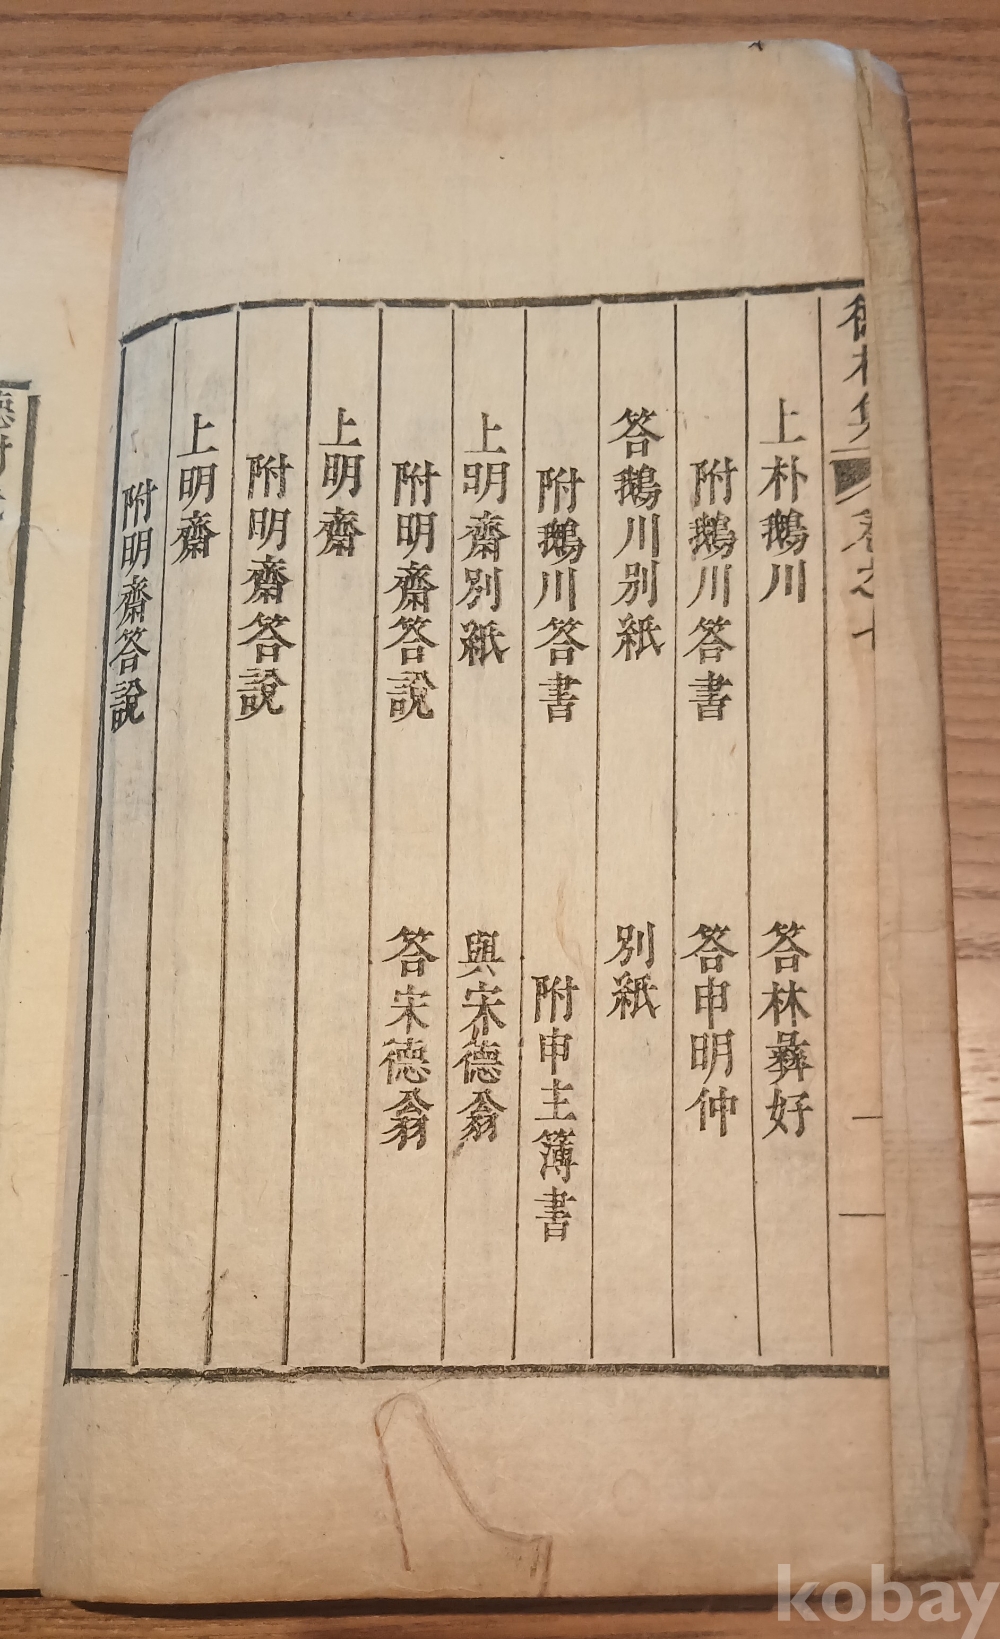 德村集 卷之十
上朴鵝川 答林彝好
附鵝川答書 答申明仲
答鵝川別紙 別紙
附鵝川答書 附申主簿書
上明齋別紙 與宋德翁
附明齋答說 答宋德翁
上明齋
附明齋答說
上明齋
附明齋答說
德村
kobay